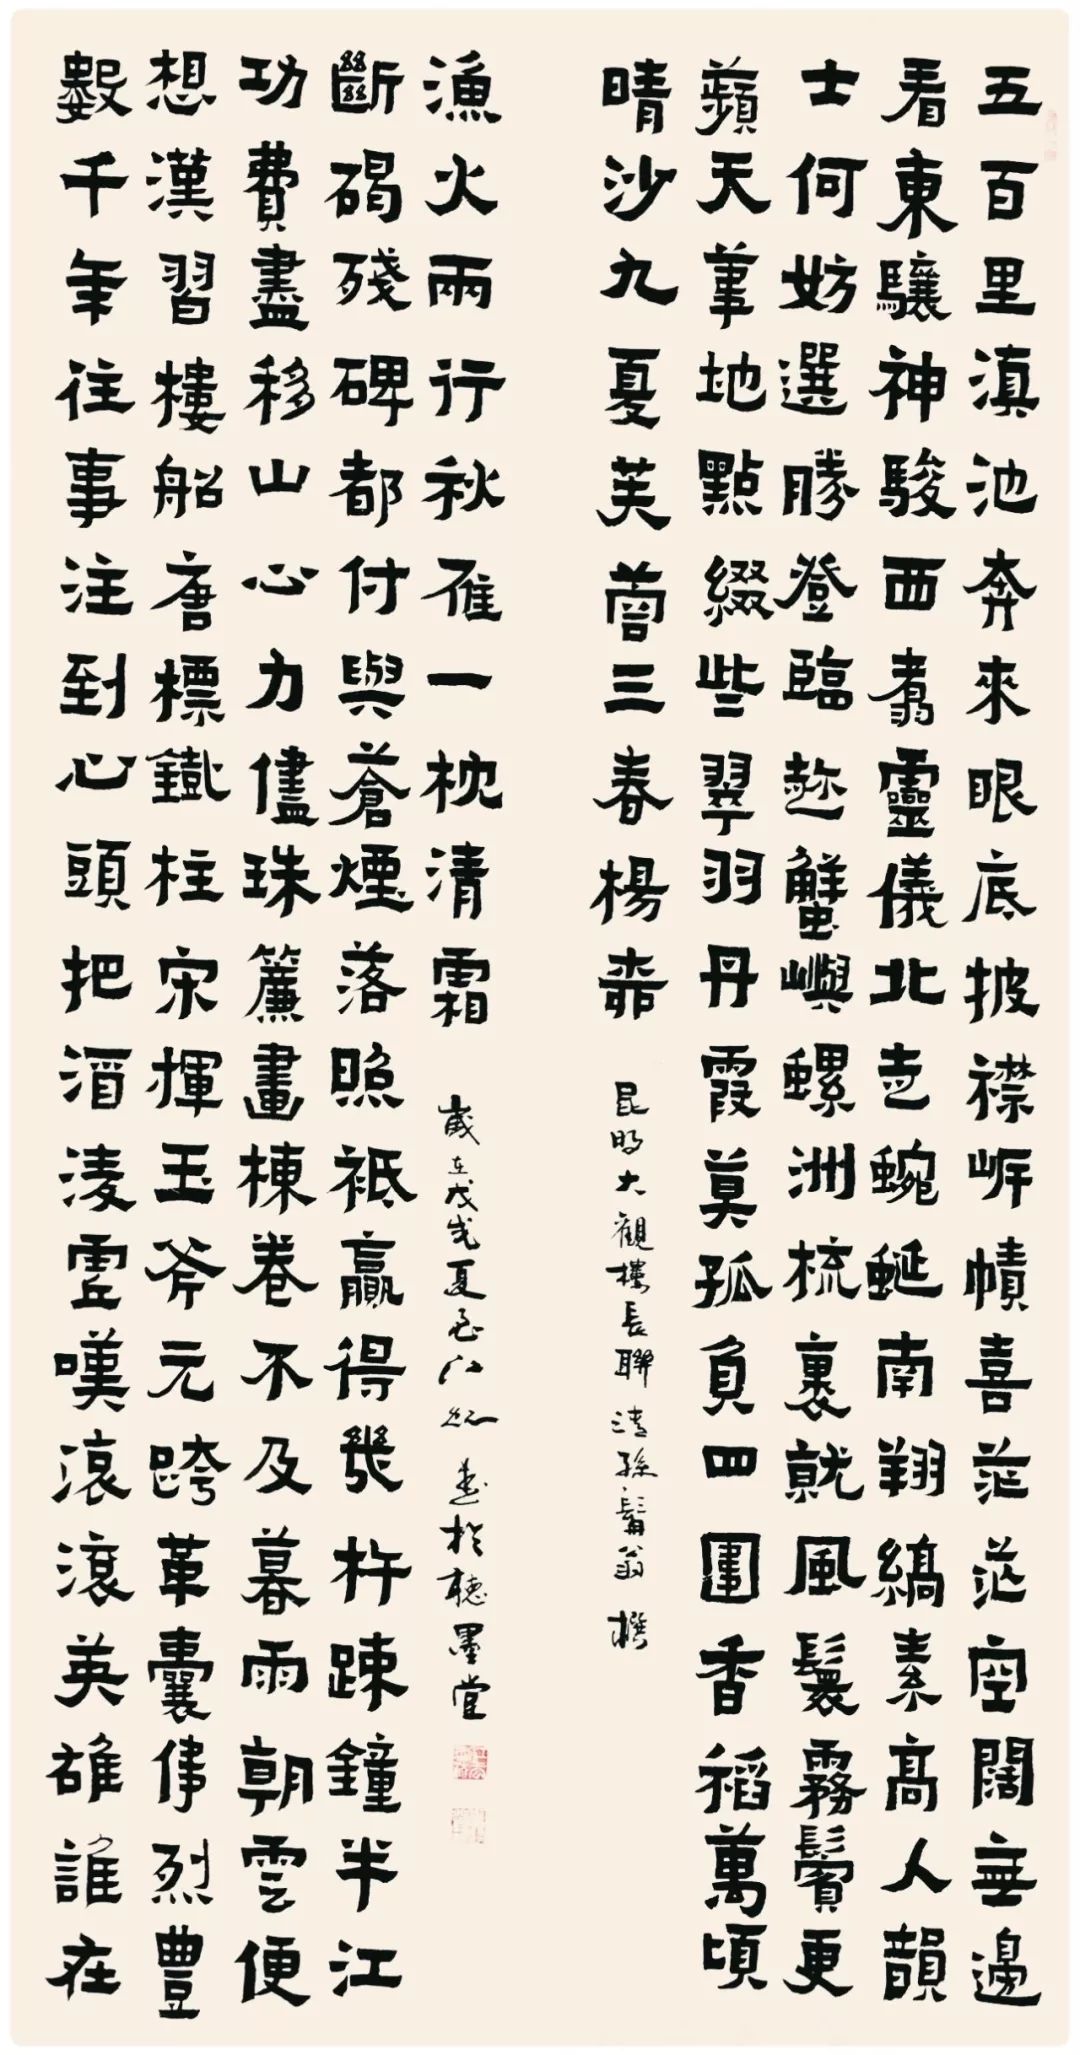 五百里滇池奔來眼底披襟岸幘喜茫茫空闊無邊
看東驤神駿西翥靈儀北走蜿蜒南翔縞素高人韻
士何妨選勝登臨趁蟹嶼螺洲梳裹就風鬟霧鬢更
蘋天葦地點綴些翠羽丹霞莫孤負四圍香稻萬頃
晴沙九夏芙蓉三春楊柳
昆明大觀樓長聯清孫髯翁撰
數千年往事注到心頭把酒淩虛嘆滾滾英雄誰在
想漢習樓船唐標鐵柱宋揮玉斧元跨革囊偉烈豐
功費盡移山心力儘珠簾畫棟卷不及暮雨朝雲便
斷碣殘碑都付與蒼煙落照祗贏得幾杵疎鐘半江
漁火兩行秋雁一枕清霜
歲在戊戌夏書於聽墨堂